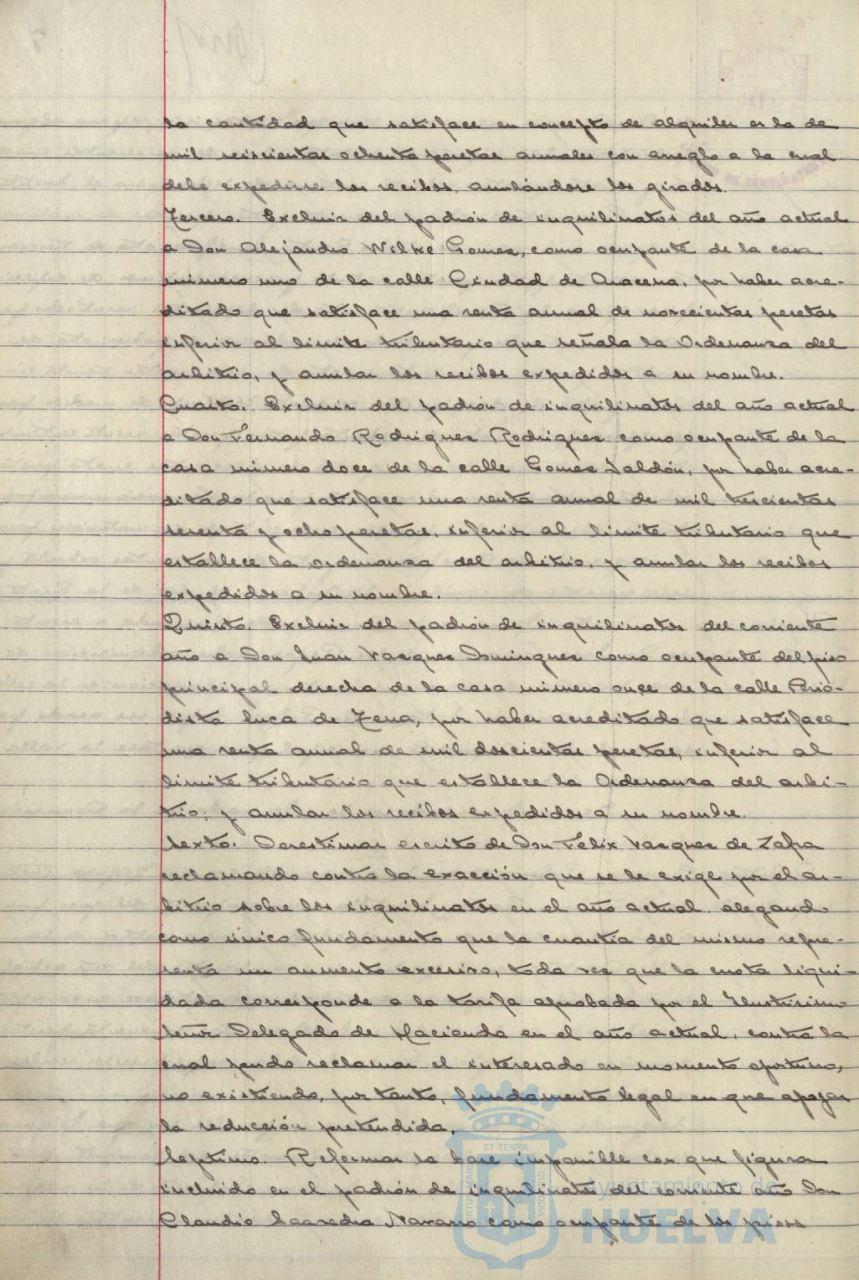 la cantidad que satisface en concepto de alquiler es la de
mil seiscientas ochenta pesetas anuales con arreglo a la cual
debe expedirse los recibos, anulándose los girados.
Tercero. Excluir del padrón de inquilinatos del año actual
a Don Alejandro Wilke Gomez, como ocupante de la casa
número uno de la calle Ciudad de Aracena, por haber acre-
ditado que satisface una renta anual de novecientas pesetas
inferior al limite tributario que señala la Ordenanza del
arbitrio, y anular los recibos expedidos a su nombre.
Cuarto. Excluir del padrón de inquilinatos del año actual
a Don Fernando Rodriguez Rodriguez como ocupante de la
casa número doce de la calle Gomez Jaldón, por haber acre-
ditado que satisface una renta anual de mil trescientas
sesenta y ocho pesetas, inferior al limite tributario que
establece la ordenanza del arbitrio, y anular los recibos
expedidos a su nombre.
Quinto. Excluir del padrón de inquilinatos del corriente
año a Don Juan Vazquez Dominguez como ocupante del piso
principal derecha de la casa número once de la calle Perio-
dista Luca de Tena, por haber acreditado que satisface
una renta anual de mil doscientas pesetas, inferior al
limite tributario que establece la Ordenanza del arbi-
trio, y anular los recibos expedidos a su nombre.
Sexto. Desestimar escrito de Don Félix Vazquez de Zafra
reclamando contra la exacción que se le exige por el ar-
bitrio sobre los inquilinatos en el año actual alegando
como único fundamento que la cuantía del mismo repre-
senta un aumento excesivo, toda vez que la cuota liqui-
dada corresponde a la tarifa aprobada por el Ilustrisimo
Señor Delegado de Hacienda en el año actual, contra la
cual pudo reclamar el interesado en momento oportuno,
no existiendo, por tanto, fundamento legal en que apoyar
la reducción pretendida.
Septimo. Reformar la base imponible con que figura
incluido en el padrón de inquilinatos del corriente año Don
Claudio Saavedra Navarro como ocupante de los pisos
ET TERRA
Ayuntamiento de
HUELVA